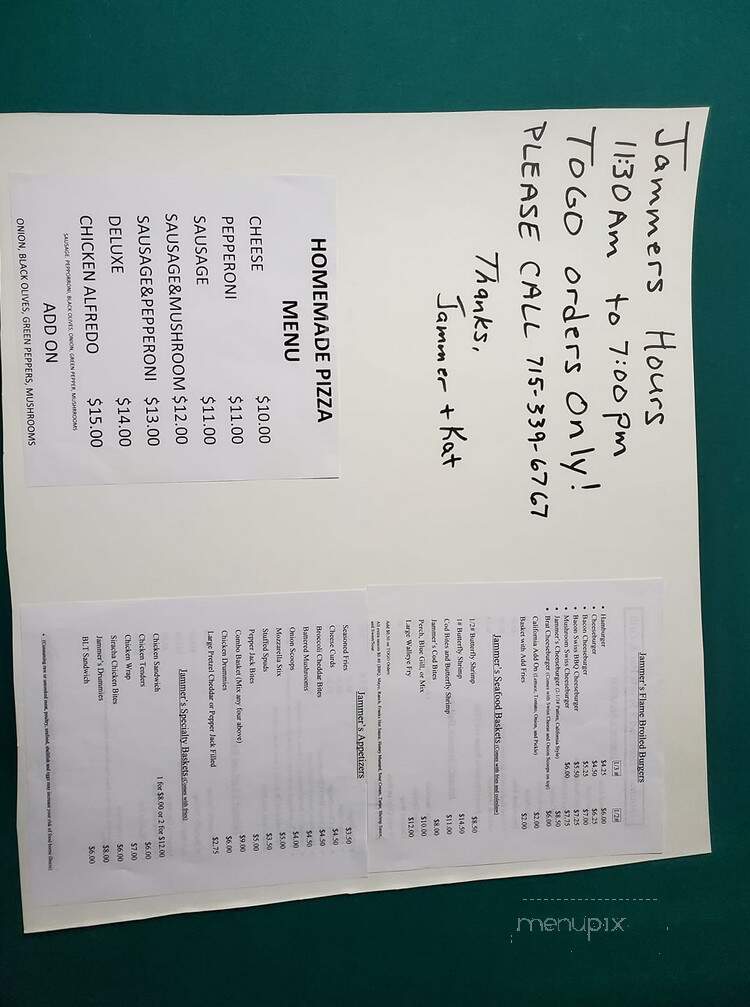 Jammers Hours
11:30 Am to 7:00 pm
TOGO orders Only!
PLEASE CALL 715-339-6767
Thanks,
Jammer + Kat
HOMEMADE PIZZA
MENU
CHEESE $10.00
PEPPERONI $11.00
SAUSAGE $11.00
SAUSAGE&MUSHROOM $12.00
SAUSAGE&PEPPERONI $13.00
DELUXE $14.00
SAUSAGE, PEPPORRONI, BLACK OLIVES, ONION, GREEN PEPPER, MUSHROOMS
CHICKEN ALFREDO $15.00
ADD ON
ONION, BLACK OLIVES, GREEN PEPPERS, MUSHROOMS
Jammer's Flame Broiled Burgers
1/3# 1/2#
• Hamburger $4.25 $6.00
• Cheeseburger $4.50 $6.25
• Bacon Cheeseburger $5.25 $7.00
• Bacon Swiss BBQ Cheeseburger $5.50 $7.25
• Mushroom Swiss Cheeseburger $6.00 $7.75
• Jammer's Cheeseburger (2-1/3# Patties, California Style) $8.50
• Brat Cheeseburger (Comes with Swiss Cheese and Onion Scoops on top) $6.00
California Add On (Lettuce, Tomato, Onion, and Pickle) $2.00
Basket with Add Fries $2.00
Jammer's Seafood Baskets (Comes with fries and coleslaw)
1/2# Butterfly Shrimp $8.50
1# Butterfly Shrimp $14.50
Cod Bites and Butterfly Shrimp $11.00
Jammer's Cod Bites $8.00
Perch, Blue Gill, or Mix $10.00
Large Walleye Fry $12.00
Jammer's Appetizers
Seasoned Fries $3.50
Cheese Curds $4.50
Broccoli Cheddar Bites $4.50
Battered Mushrooms $4.50
Onion Scoops $4.00
Mozzarella Stix $5.00
Stuffed Spuds $3.50
Pepper Jack Bites $5.00
Combo Basket (Mix any four above) $9.00
Chicken Drummies $6.00
Large Pretzel Cheddar or Pepper Jack Filled $2.75
Jammer's Specialty Baskets (Comes with fries)
1 for $8.00 or 2 for $12.00
Chicken Sandwich $6.00
Chicken Tenders $7.00
Chicken Wrap $6.00
Siracha Chicken Bites $8.00
Jammer's Drummies
BLT Sandwich $6.00
• (Consuming raw or uncooked meat, poultry, seafood, shellfish and eggs may increase your risk of food borne illness)
menupix